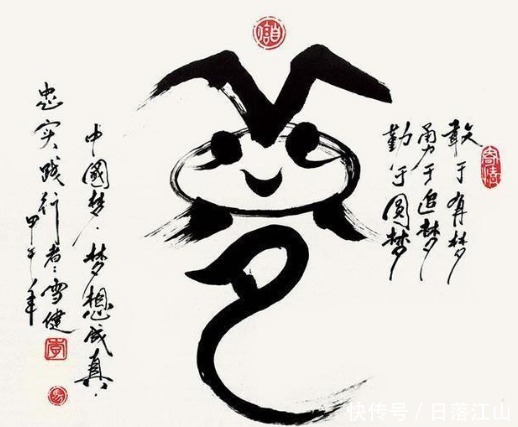 敢于有梦
勇于追梦
勤于圆梦
中國梦·梦想成真·
忠实践行者:雪健
甲午年
快传号 / 日落江山